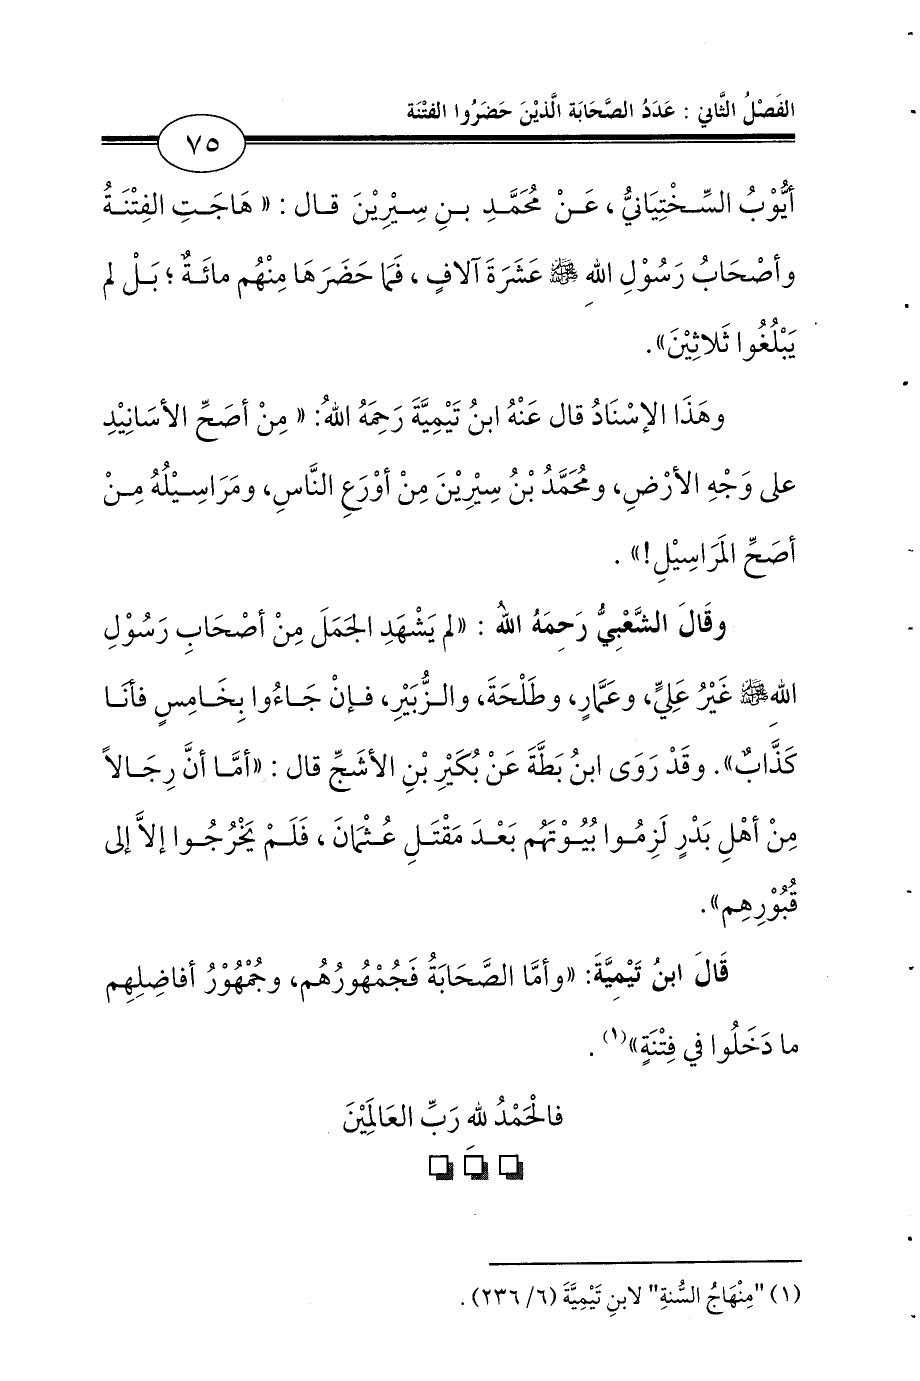 الفَصْلُ الثَّاني : عَدَدُ الصَّحَابَة الَّذيْنَ حَضَرُوا الفتْنَة
٧٥
أيُّوْبُ السِّخْتِيَانيُّ ، عَنْ مُحَمَّدِ بنِ سِيْرِيْنَ قال : « هَاجَتِ الفِتْنَةُ
وأصْحَابُ رَسُوْلِ اللهِ ﷺ عَشَرَةَ آلافٍ ، فَمَا حَضَرَهَا مِنْهُم مائَةٌ ؛ بَلْ لم
يَبْلُغُوا ثَلاثِيْنَ» .
وهَذَا الإسْنَادُ قال عَنْهُ ابنُ تَيْمِيَّةَ رَحِمَهُ اللهُ: « مِنْ أصَحِّ الأسَانِيْدِ
على وَجْهِ الأرْضِ، ومُحَمَّدُ بْنُ سِيْرِيْنَ مِنْ أوْرَعِ النَّاسِ، ومَرَاسِيْلُهُ مِنْ
أصَحِّ المَرَاسِيْلِ!» .
وقَالَ الشَّعْبِيُّ رَحِمَهُ اللهُ : «لم يَشْهَدِ الجَمَلَ مِنْ أصْحَابِ رَسُوْلِ
اللهِ ﷺ غَيْرُ عَلِيٍّ، وعَمَّارٍ، وطَلْحَةَ، والزُّبَيْرِ، فإنْ جَاءُوا بِخَامِسٍ فأنَا
كَذَّابٌ» . وقَدْ رَوَى ابنُ بَطَّةَ عَنْ بُكَيْرِ بْنِ الأشَجِّ قال : «أمَّا أنَّ رِجَالاً
مِنْ أهْلِ بَدْرٍ لَزِمُوا بُيُوْتَهُم بَعْدَ مَقْتَلِ عُثْمَانَ ، فَلَمْ يَخْرُجُوا إلاَّ إلى
قُبُوْرِهِم» .
قَالَ ابنُ تَيْمِيَّةَ: «وأمَّا الصَّحَابَةُ فَجُمْهُورُهُم، وجُمْهُوْرُ أفاضِلِهِم
ما دَخَلُوا في فِتْنَةٍ»(١) .
فالحَمْدُ لله رَبِّ العَالَمِيْنَ
(١) "مِنْهَاجُ السُّنةِ" لابنِ تَيْمِيَّةَ (٦/ ٢٣٦) .